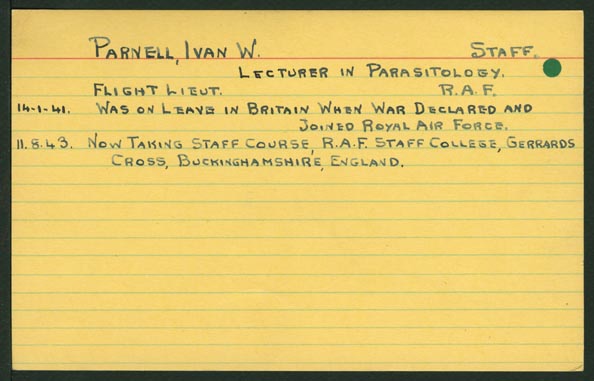 PARNELL, IVAN W. STAFF.
LECTURER IN PARASITOLOGY.
FLIGHT LIEUT. R.A.F.
14-1-41. WAS ON LEAVE IN BRITAIN WHEN WAR DECLARED AND
JOINED ROYAL AIR FORCE.
11.8.43. NOW TAKING STAFF COURSE, R.A.F. STAFF COLLEGE, GERRARDS
CROSS, BUCKINGHAMSHIRE, ENGLAND.